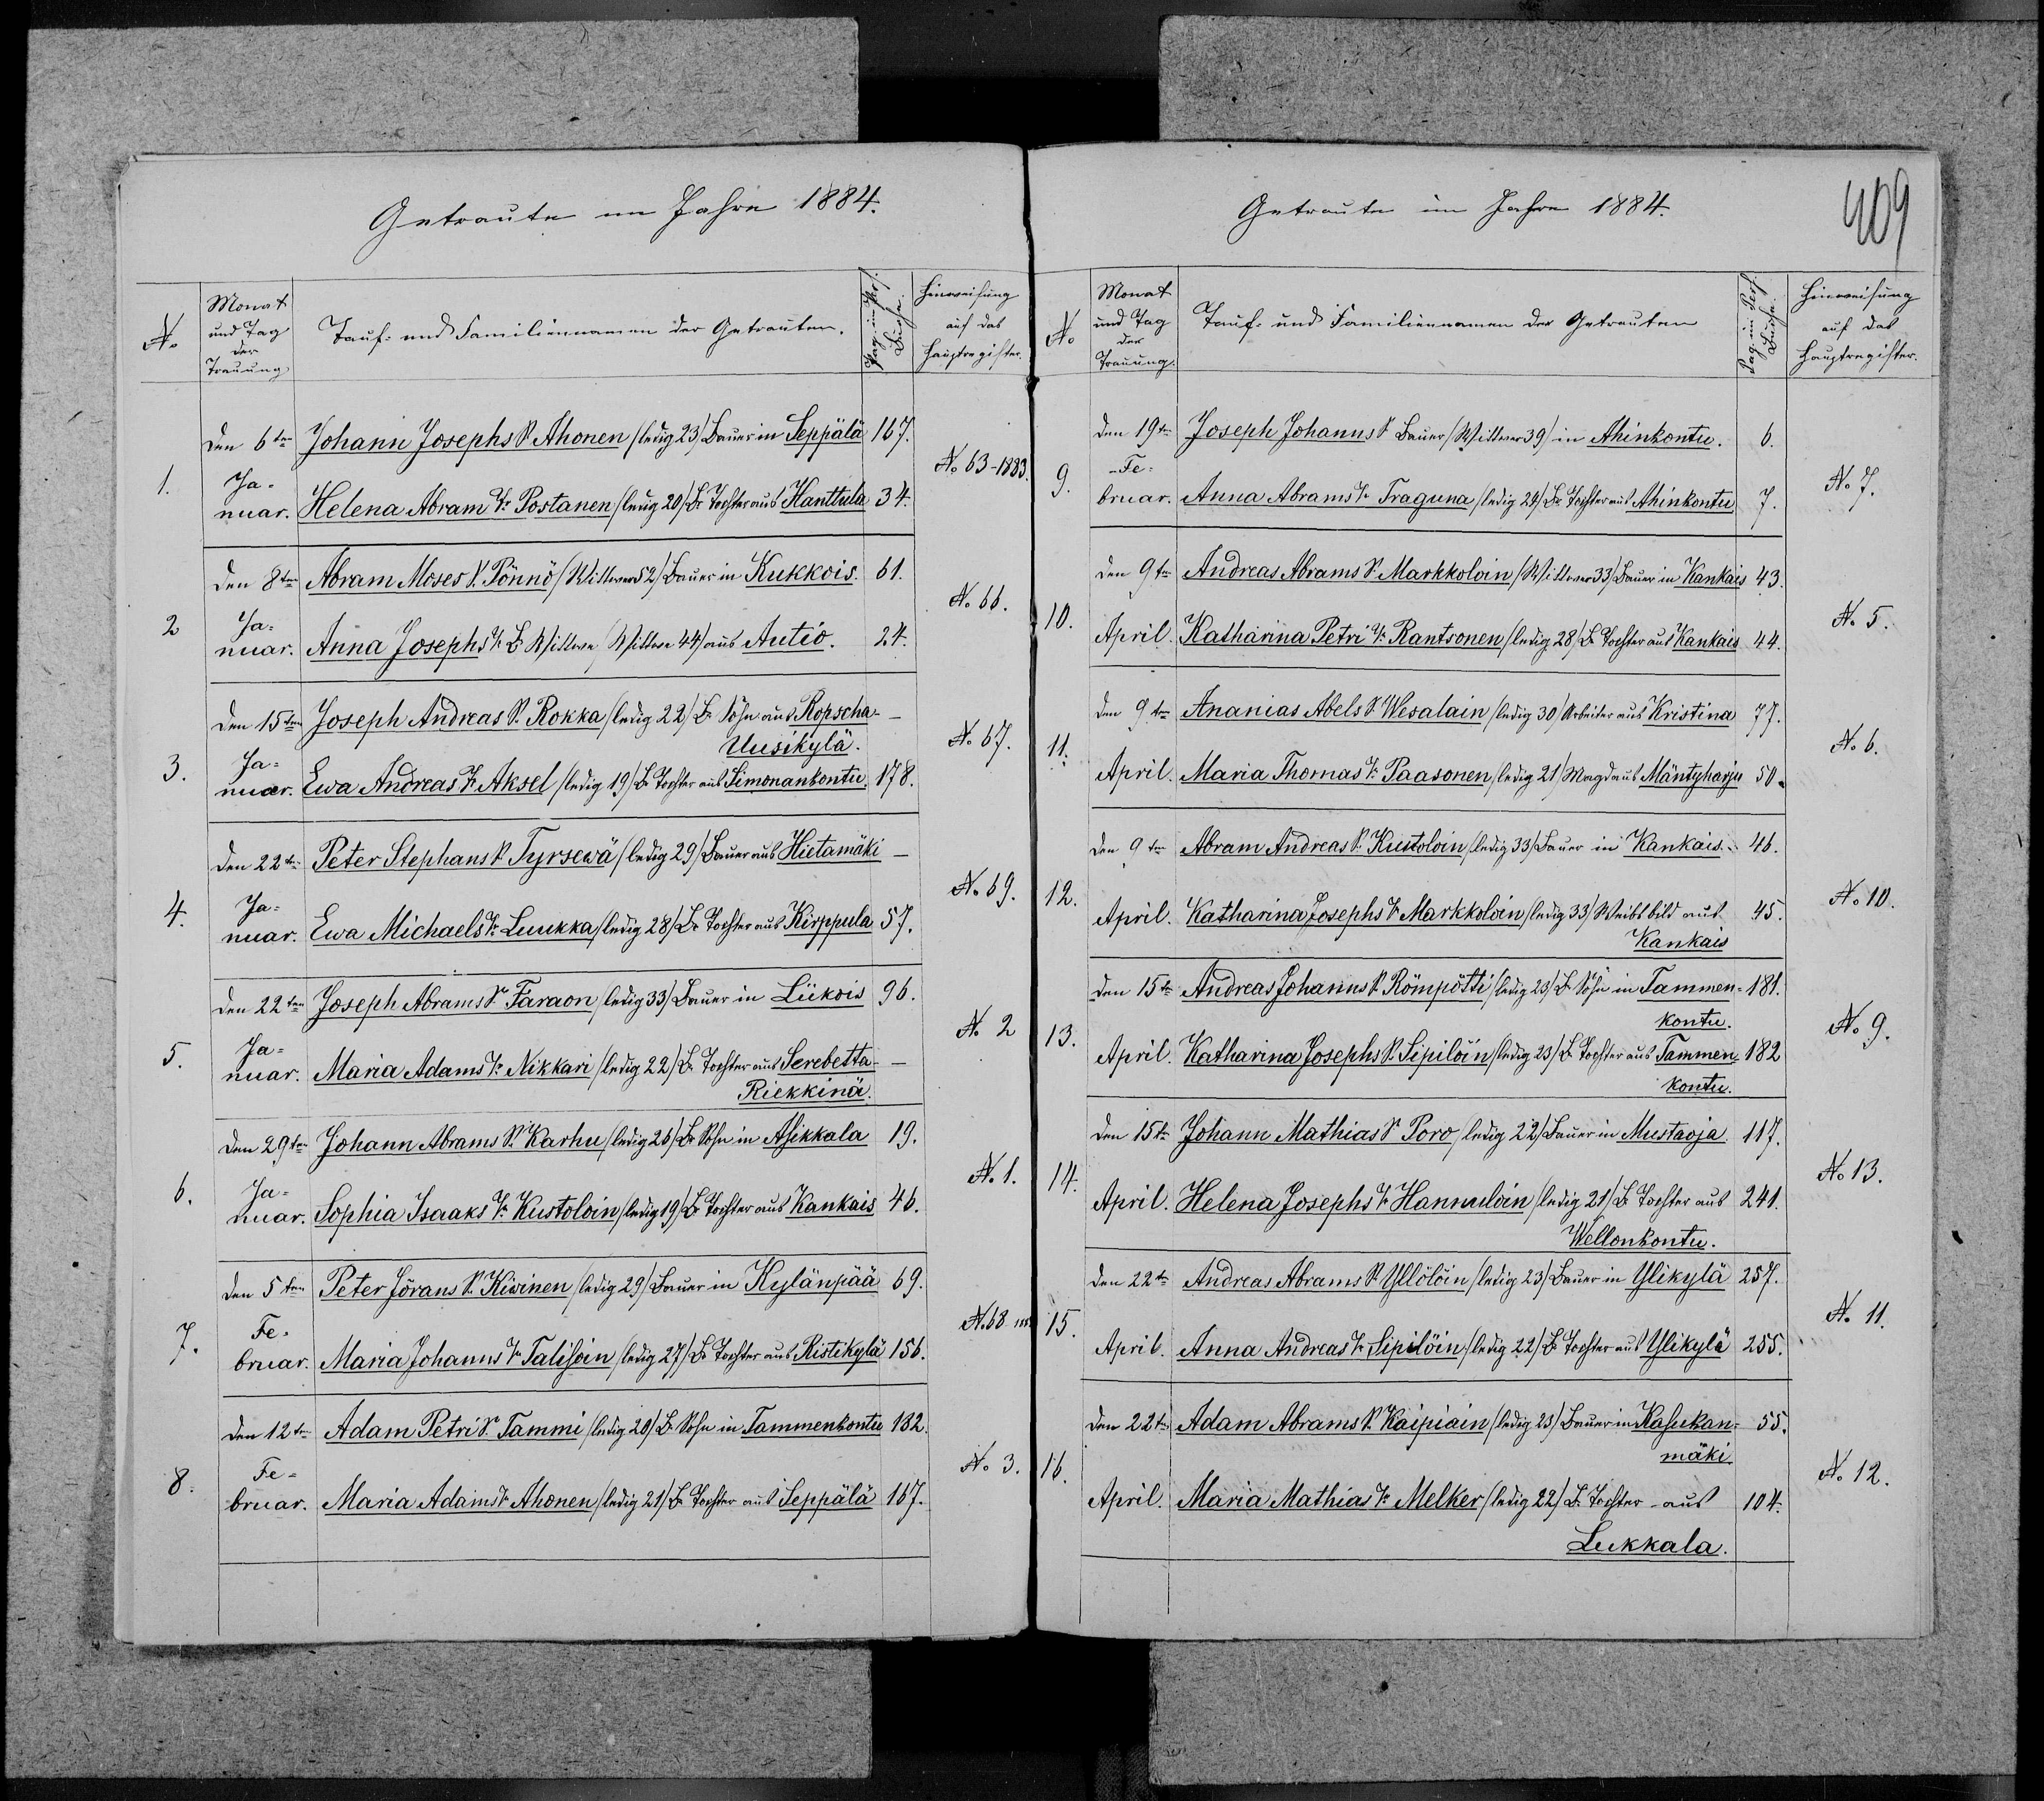 Getraute im Jahre 1884.
No
Monat und Tag der Trauung
Tauf- und Familiennamen der Getrauten.
Pag. im Pers. Buche.
Hinweisung auf das Hauptregister.
1.
den 6ten Johann Josephs S. Ahonen (ledig 23) Bauer in Seppälä 167.
No 63-1883.
Januar. Helena Abram Tr. Postanen (ledig 20) Br Tochter aus Hanttula 34.
2
den 8ten Abram Moses S. Pönnö (Wittwer 52) Bauer in Kukkois. 61.
No 66.
Januar. Anna Josephs Tr. Br Wittwe (Wittwe 44) aus Autio. 24.
3.
den 15ten Joseph Andreas S. Rokka (ledig 22) Br Sohn aus Ropscha- –
Uusikylä.
No 67.
Januar. Ewa Andreas Tr. Aksel (ledig 19) Br Tochter aus Simonankontu. 178.
4.
den 22ten Peter Stephans S. Tyrsewä (ledig 29) Bauer aus Hietamäki –
No 69.
Januar. Ewa Michaels Tr. Luukka (ledig 28) Br Tochter aus Kirppula 57.
5.
den 22ten Joseph Abrams S. Faraon (ledig 33) Bauer in Liikois 96.
No 2
Januar. Maria Adams Tr. Nikkari (ledig 22) Br Tochter aus Serebetta- –
Riekkinä.
6.
den 29ten Johann Abrams S. Karhu (ledig 26) Br Sohn in Asikkala 19.
No 1.
Januar. Sophia Isaaks Tr. Kustoloin (ledig 19) Br Tochter aus Kankais 46.
7.
den 5ten Peter Jörans S. Kiwinen (ledig 29) Bauer in Kylänpää 69.
No 68
Februar. Maria Johanns Tr. Talisoin (ledig 27) Br Tochter aus Ristikylä 156.
8.
den 12ten Adam Petri S. Tammi (ledig 20) Br Sohn in Tammenkontu 182.
No 3.
Februar. Maria Adams Tr. Ahonen (ledig 21) Br Tochter aus Seppälä 167.
Getraute im Jahre 1884.
409
No
Monat und Tag der Trauung.
Tauf- und Familiennamen der Getrauten
Pag. im Pers. Buche.
Hinweisung auf das Hauptregister.
9.
den 19ten Joseph Johanns S. Bauer (Wittwer 39) in Ahinkontu. 6.
No 7.
Februar. Anna Abrams Tr. Traguna (ledig 24) Br Tochter aus Ahinkontu 7.
10.
den 9ten Andreas Abrams S. Markkoloin (Wittwer 33) Bauer in Kankais 43.
No 5.
April. Katharina Petri Tr. Rantsonen (ledig 28) Br Tochter aus Kankais 44.
11.
den 9ten Ananias Abels S. Wesalain (ledig 30) Arbeiter aus Kristina 77.
No 6.
April. Maria Thomas Tr. Paasonen (ledig 21) Magd aus Mäntyharju 50.
12.
den 9ten Abram Andreas S. Kustoloin (ledig 33) Bauer in Kankais. 46.
No 10.
April. Katharina Josephs Tr. Markkoloin (ledig 33) Weibsbild aus 45.
Kankais
13.
den 15ten Andreas Johanns S. Römpötti (ledig 23) Br Sohn in Tammen- 181.
kontu.
No 9.
April. Katharina Josephs S. Sipiloin (ledig 23) Br Tochter aus Tammen 182
kontu.
14.
den 15ten Johann Mathias S. Poro (ledig 22) Bauer in Mustaoja. 117.
No 13.
April. Helena Josephs Tr. Hannuloin (ledig 21) Br Tochter aus 241.
Wellonkontu.
15.
den 22ten Andreas Abrams S. Ylloloin (ledig 23) Bauer in Ylikylä 257.
No 11.
April. Anna Andreas Tr. Sipilöin (ledig 22) Br Tochter aus Ylikylä 255.
16.
den 22ten Adam Abrams S. Kaipiain (ledig 23) Bauer in Kasukan- 55.
mäki
No 12.
April. Maria Mathias Tr. Melker (ledig 22) Br Tochter aus 104.
Lukkala.